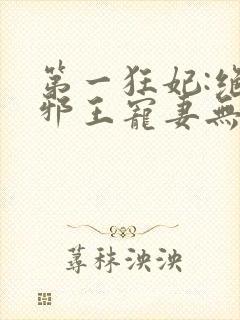 第一狂妃:绝
邪王寵妻無
蕁秣泱泱